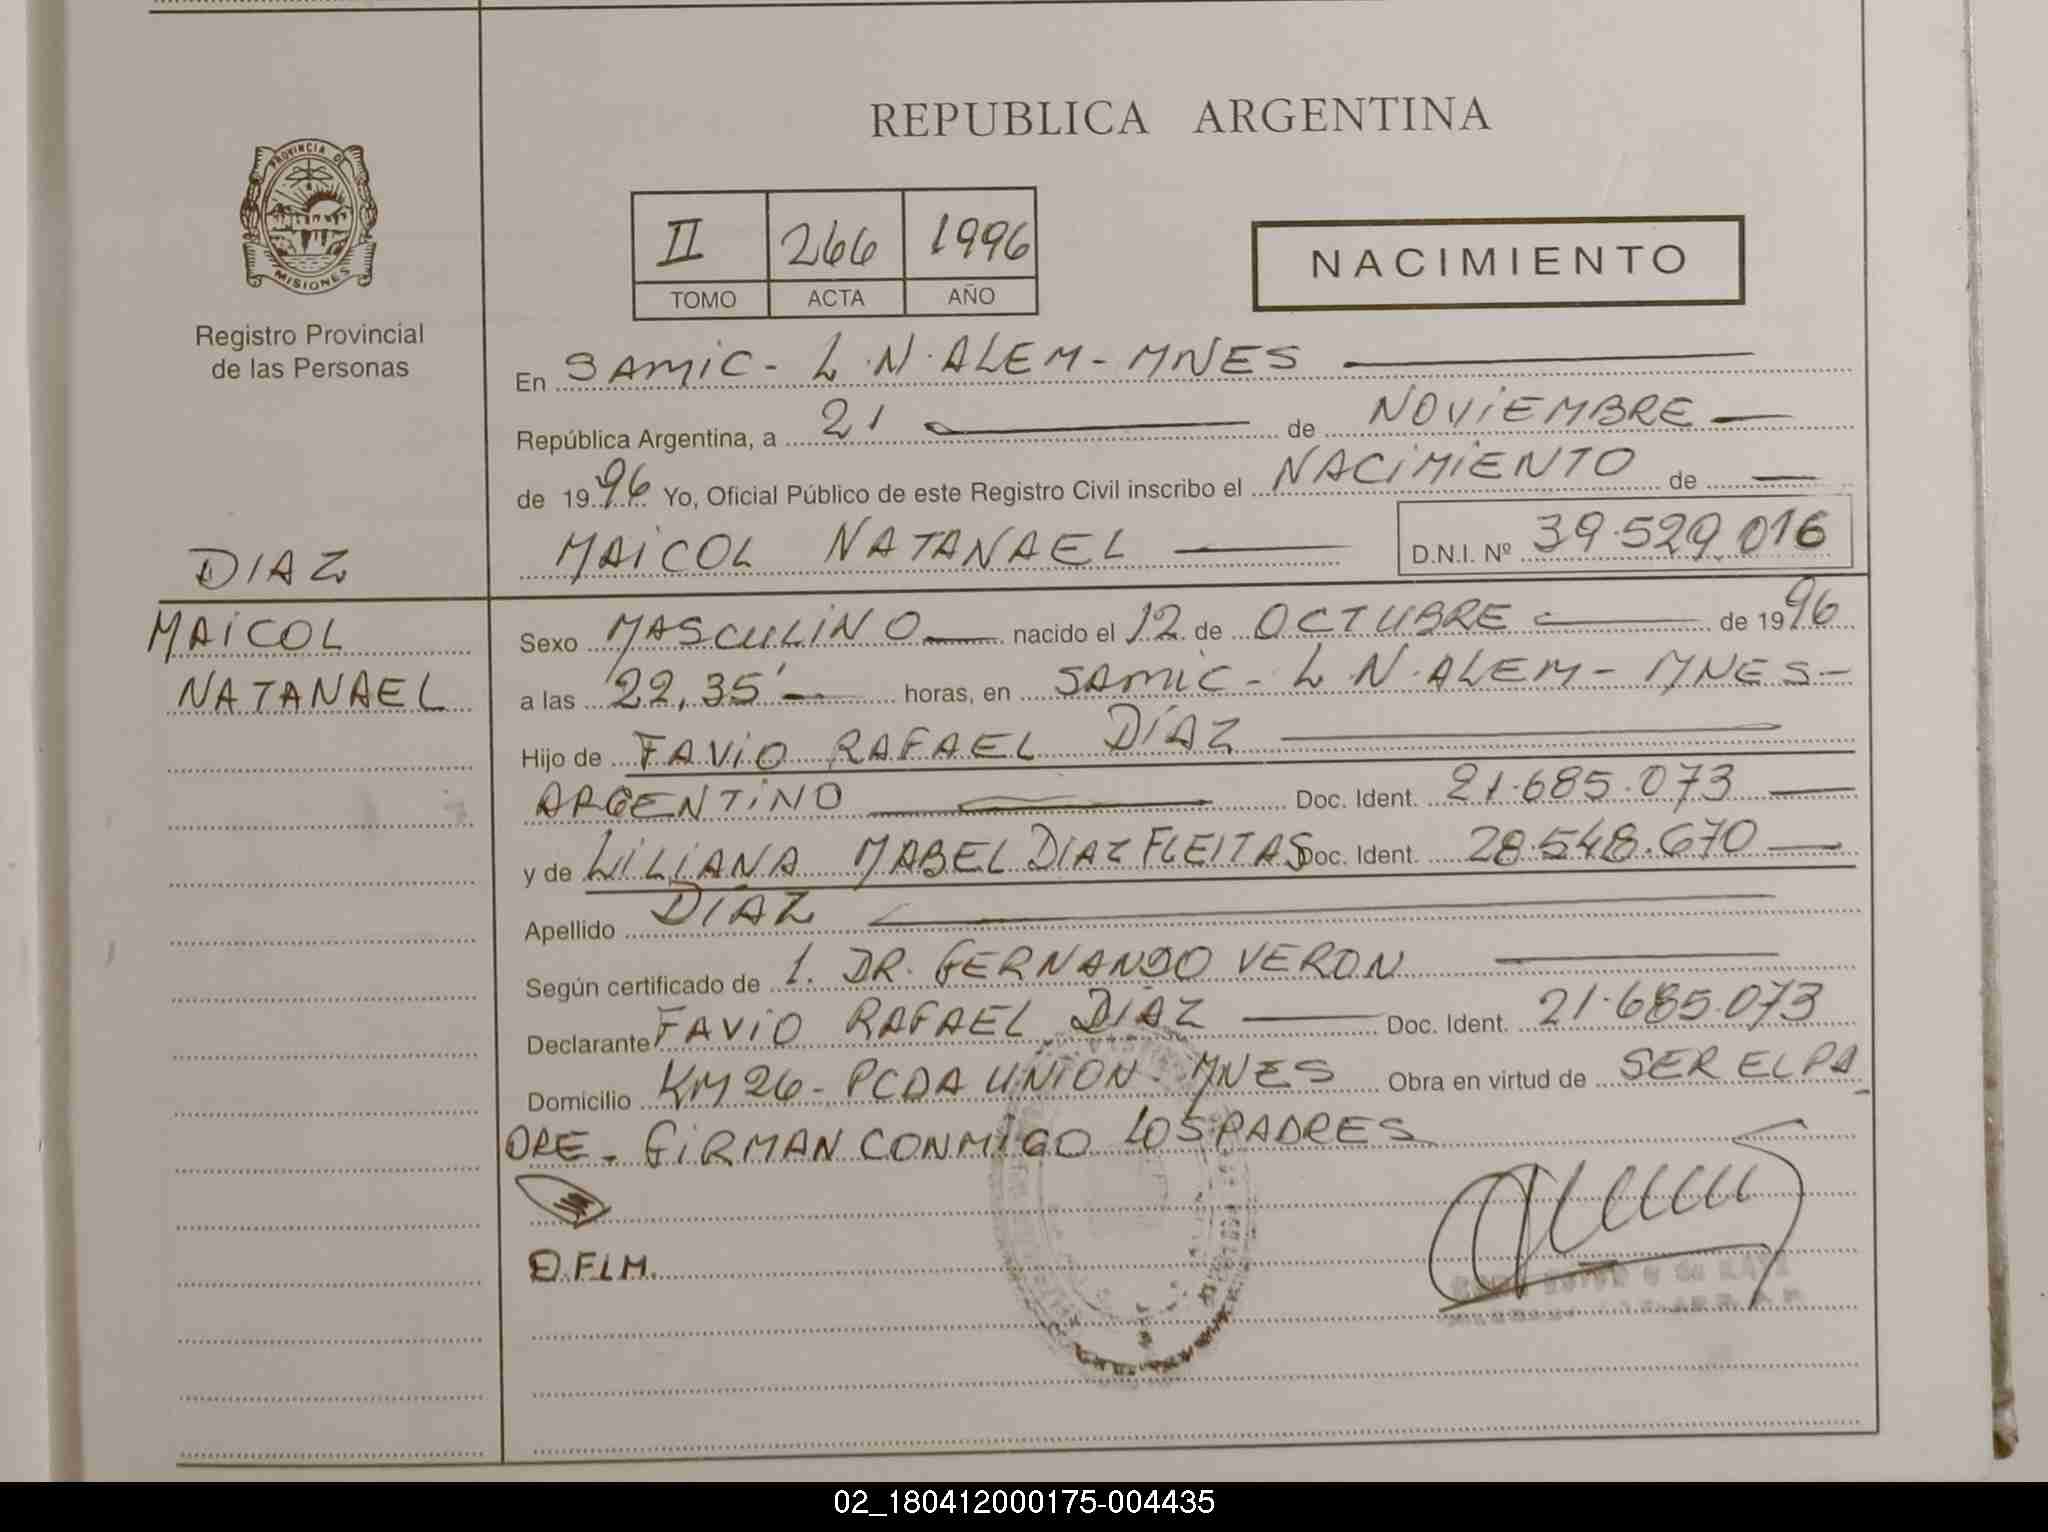 REPUBLICA ARGENTINA
PROVINCIA DE
MISIONES
Registro Provincial
de las Personas
II 266 1996
TOMO ACTA AÑO
NACIMIENTO
En SAMIC - L.N. ALEM - MNES
República Argentina, a 21 de NOVIEMBRE
de 1996 Yo, Oficial Público de este Registro Civil inscribo el NACIMIENTO de
MAICOL NATANAEL D.N.I. Nº 39.529.016
DIAZ
MAICOL
NATANAEL
Sexo MASCULINO nacido el 12 de OCTUBRE de 1996
a las 22,35' horas, en SAMIC - L.N. ALEM - MNES -
Hijo de FAVIO RAFAEL DÍAZ
ARGENTINO Doc. Ident. 21.685.073
y de LILIANA MABEL DIAZ FLEITAS Doc. Ident. 28.548.670
Apellido DÍAZ
Según certificado de 1. DR. FERNANDO VERON
Declarante FAVIO RAFAEL DÍAZ Doc. Ident. 21.685.073
Domicilio KM 26 - PCDA UNION - MNES Obra en virtud de SER EL PA
DRE - FIRMAN CONMIGO LOS PADRES
D.F.I.M.
02_180412000175-004435